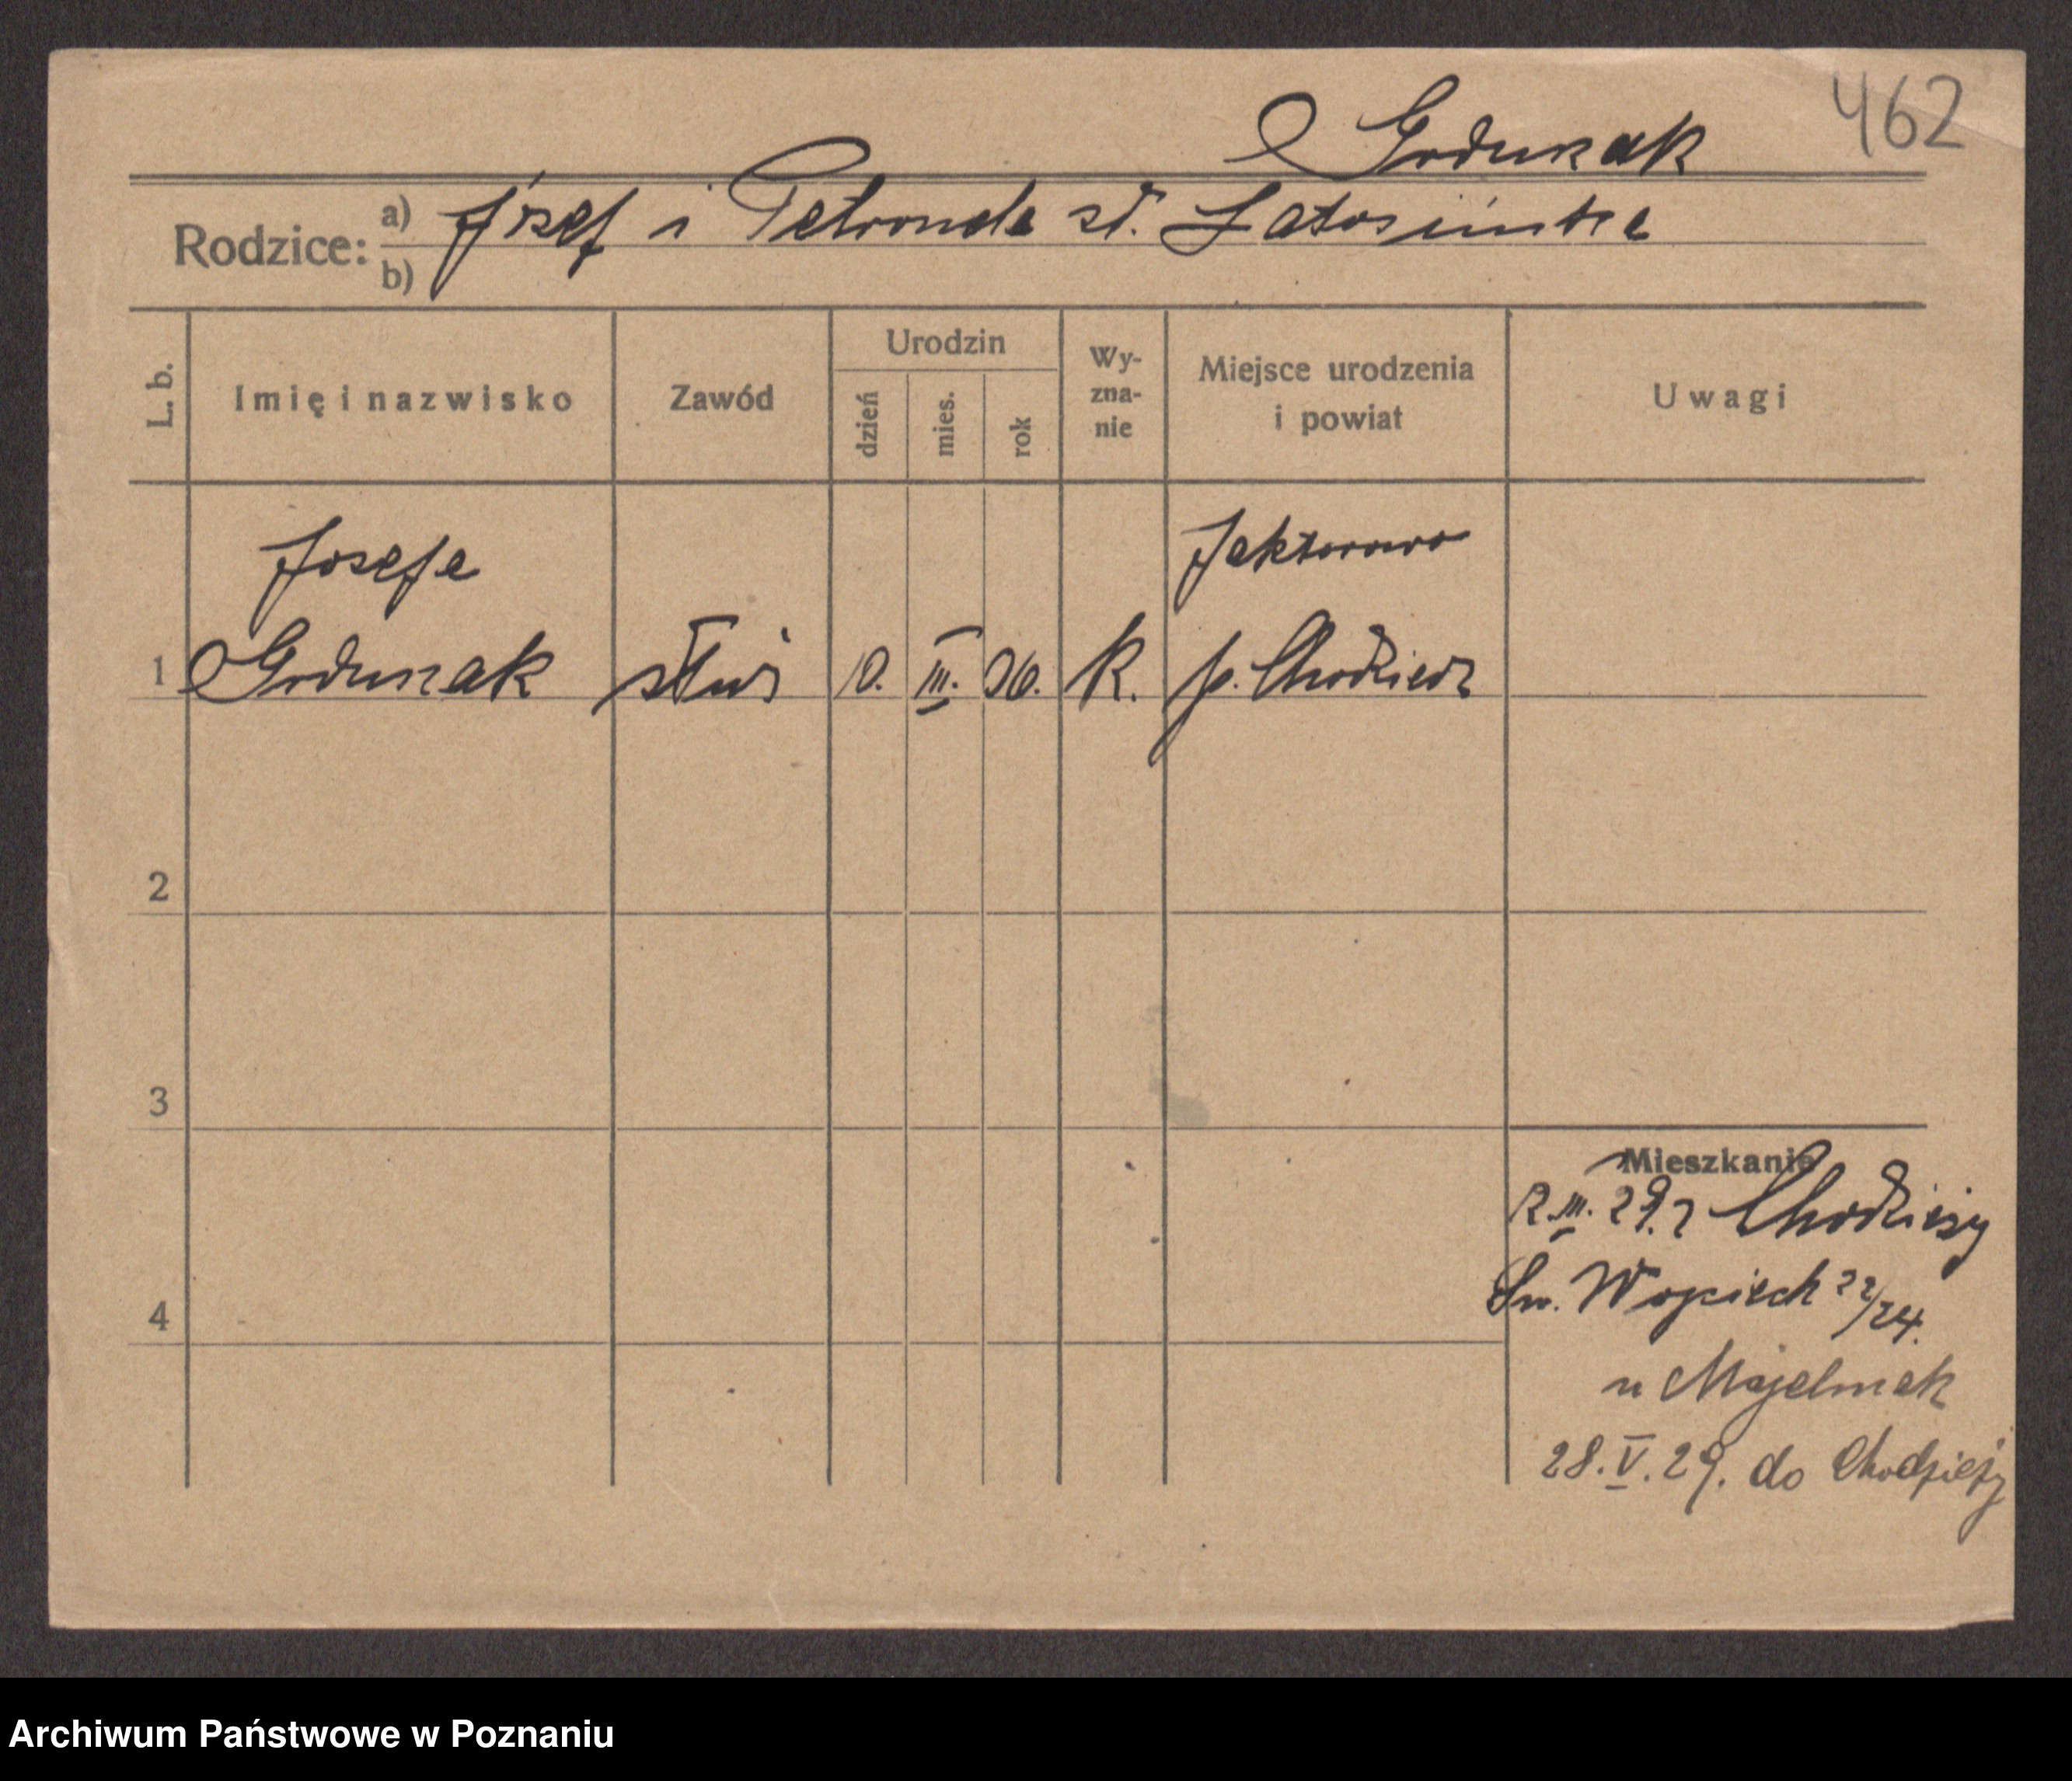 462
Grdunak
Rodzice: a) Józef i Petronela
b)
L. b.
Imię i nazwisko
Zawód
Urodzin
dzień
mies.
rok
Wy-
zna-
nie
Miejsce urodzenia
i powiat
Uwagi
Józefa
Jaktorowo
1 Grdunak służ 10. III. 06. k. p. Chodzież
2
3
4
Mieszkanie
III. 29. z Chodzieży
Św. Wojciech 22/24.
u Majelmak
28. V. 29. do Chodzieży
Archiwum Państwowe w Poznaniu